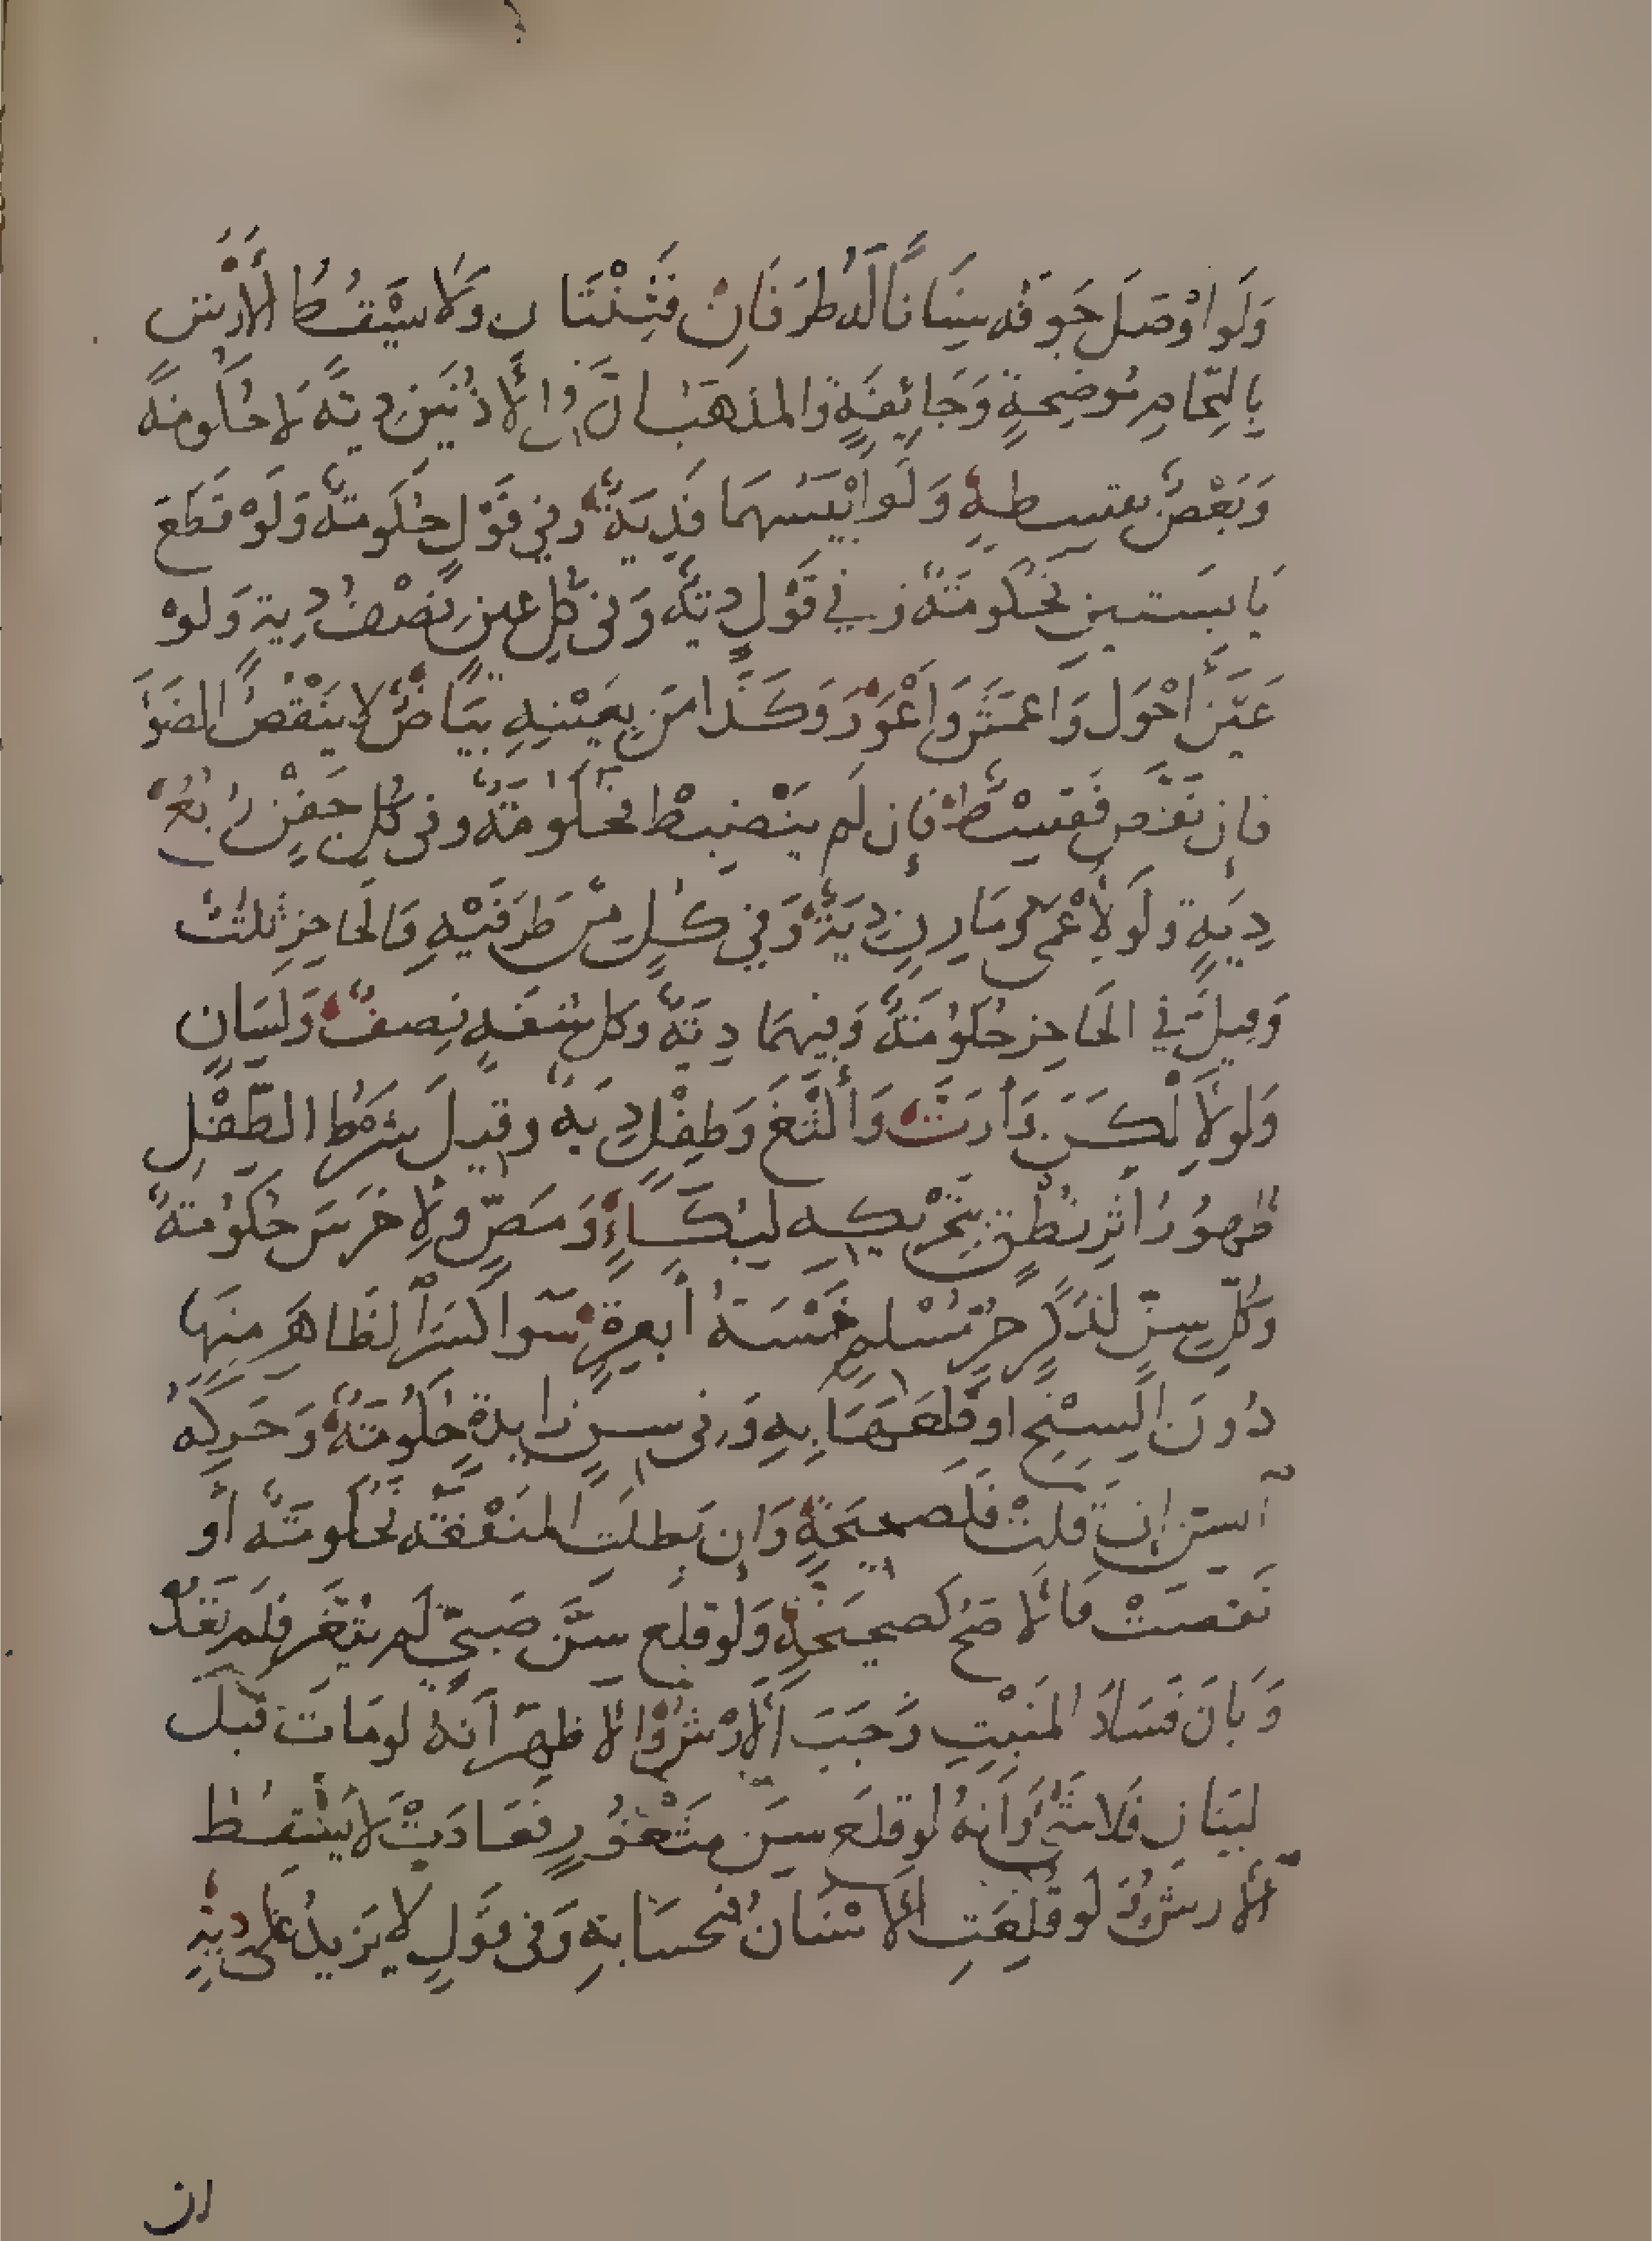 وَلَو اوْصَلَ جَوفَه سِنَانًا لَهُ طَرَفَانِ فَثِنْتَانِ وَلَا يَسْقُطُ الْأَرْشُ
بِالتِحَامِ مُوضِحَةٍ وَجَائِفَةٍ وَالمذهَبُ انَّ فِي الْأُذُنَينِ دِيَةً لَا حُكُومَةً
وَبَعْضٌ بقِسطِهِ وَلَو ايْبَسَهُمَا فَدِيَةٌ وفي قَوْلٍ حُكُومَةٌ وَلَوْ قَطَعَ
يَابِسَتينِ فحُكُومَةٌ وَفي قَوْلٍ دِيَةٌ وَفي كُلِّ عينٍ نِصْفُ دِيةٍ وَلوْ
عَيْنَ أَحْوَلَ وَاعمَشَ وَاعْوَرَ وَكَذَا مَن بِعَيْنِهِ بَيَاضٌ لا يَنْقُصُ الضَوْءَ
فإن نَقَص فَقِسْطٌ فإن لَم يَنْضبِطْ فحُكُومَةٌ وفي كُلِّ جَفْنٍ رُبُعُ
دِيَةٍ وَلَو لِأَعْمى وَمَارِنٍ دِيَةٌ وَفي كُلٍّ مِنْ طَرَفَيْهِ وَالحَاجِزِ ثلثٌ
وَقِيلَ في الحَاجِز حُكُومَةٌ وَفِيهِمَا دِيَةٌ وكل شفَةٍ نِصفٌ وَلِسَانٍ
وَلو لِأَلْكَنَ وَأرَتَّ وَأَلْثَغَ وَطِفْلٍ دِيَةٌ وقيلَ شَرْطُ الطِّفْلِ
ظُهورُ اثَرِ نُطْقٍ بِتَحْرِيكِهِ لِبُكَاءٍ وَمَصٍّ ولِأَخرَسَ حُكُومَةٌ
وَكُلِّ سِنٍّ لذَكَرٍ حُرٍّ مُسْلمٍ خَمْسَةُ أَبعِرةٍ سَوا كَسَرَ الظَاهَرَ مِنهَا
دُونَ السِنْخِ او قَلعَهَا بِهِ وَفي سِنٍّ زايدةٍ حُكُومَةٌ وَحَرَكَةُ
السِّنِّ إن قَلتْ فَكَصحيحَةٍ وَإن بَطلَتِ المنفَعَةُ فحُكُومَةٌ أو
نَقَصَتْ فَالْأَصَحُّ كَصحِيحَةٍ وَلَو قلعَ سِنَّ صَبيٍّ لَم يُثْغَر فلَم تَعُدْ
وَبَانَ فَسَادُ المنبِتِ وَجَبَ الْأَرْشُ وَالْأَظهرُ أَنَّهُ لو مَاتَ قبلَ
البَيَانِ فَلا شَيْءَ وَأَنهُ لو قلعَ سِنَّ مَثْغُورٍ فعَادَتْ لا يَسْقُطُ
الْأَرشُ وَلو قُلِعَتِ الْأَسْنَانُ فبحسَابِهِ وَفي قَوْلٍ لَا يَزيدُ عَلى دِيَةٍ
ان